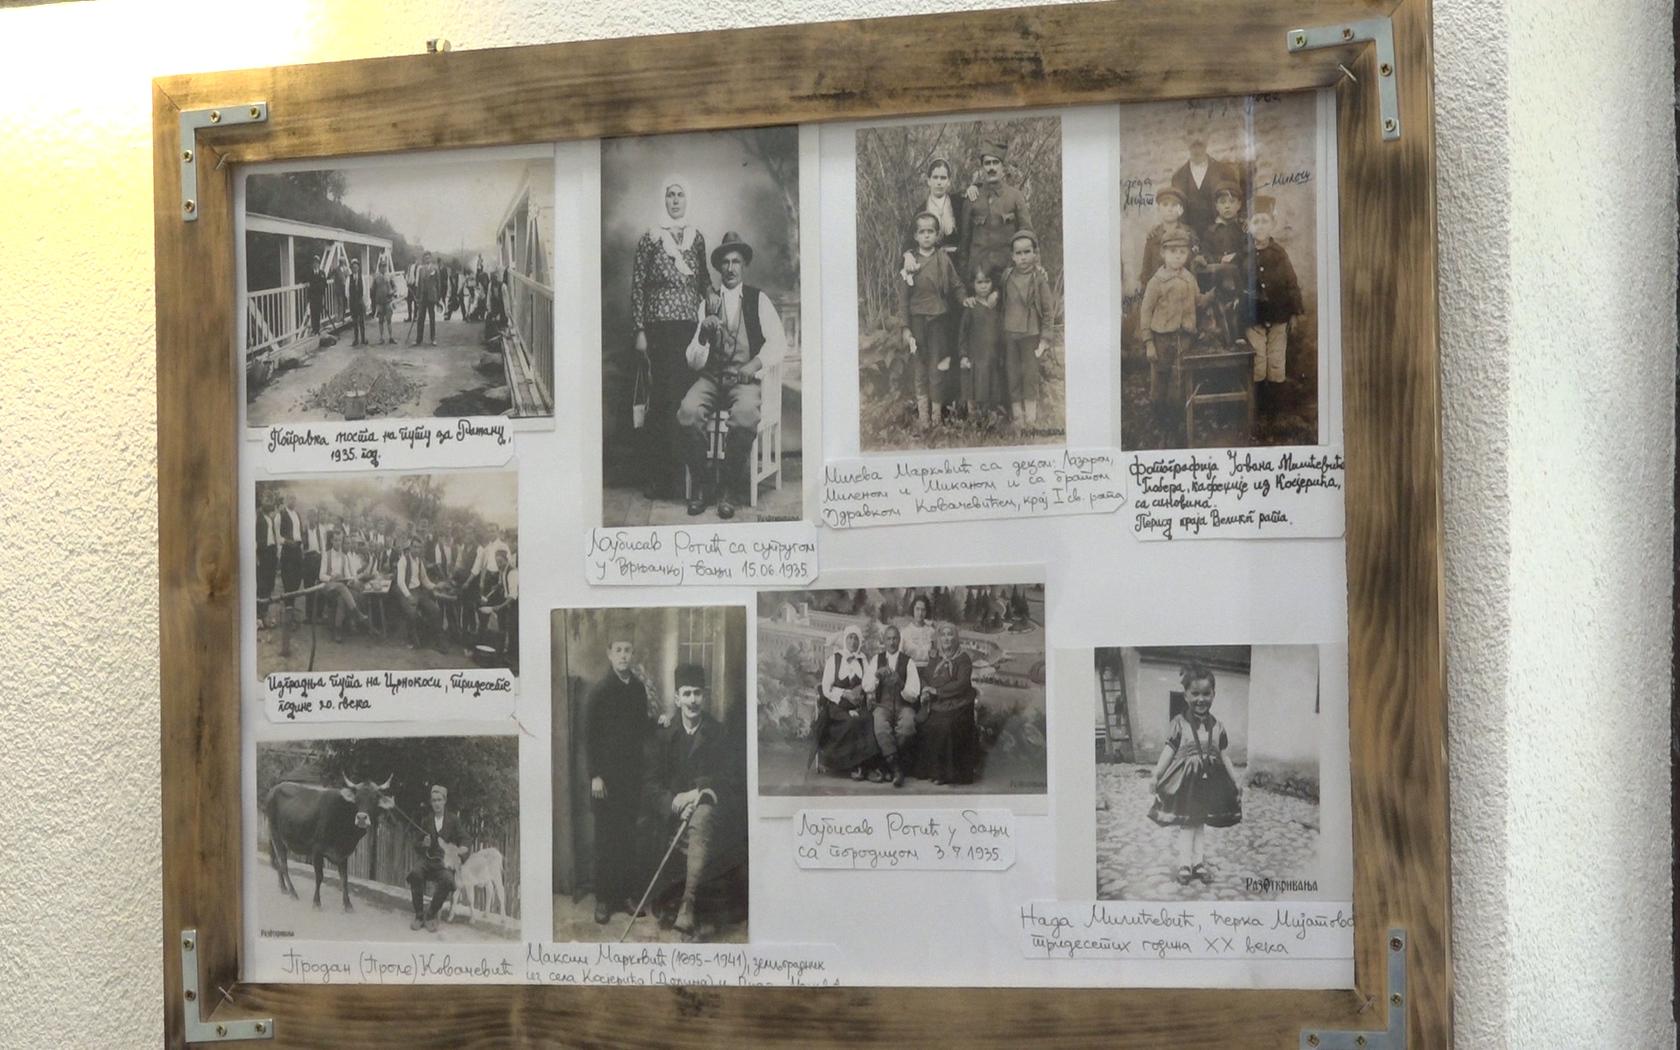 Поправка моста на путу за Ражану,
1935. год.
Љубисав Ротић са супругом
у Врњачкој Бањи 15.06.1935.
Милева Марковић са децом: Лазаром,
Миленом и Миканом и са братом
Здравком Ковачевићем, крај I св. рата
деда
Мијат
Милош
Фотографија Јована Милићевића
Ћовера, кафеџије из Косјерића,
са синовина.
Период краја Великг рата.
Изградња пута на Црнокоси, тридесете
године 20. века
Љубисав Ротић у бањи
са породицом 3.7.1935.
РазОткривања
Продан (Проле) Ковачевић
Максим Марковић (1895-1941), земљорадник
из села Косјерића (Долина) и
Нада Милићевић, ћерка Мијатова
тридесетих година XX века
РазОткривања